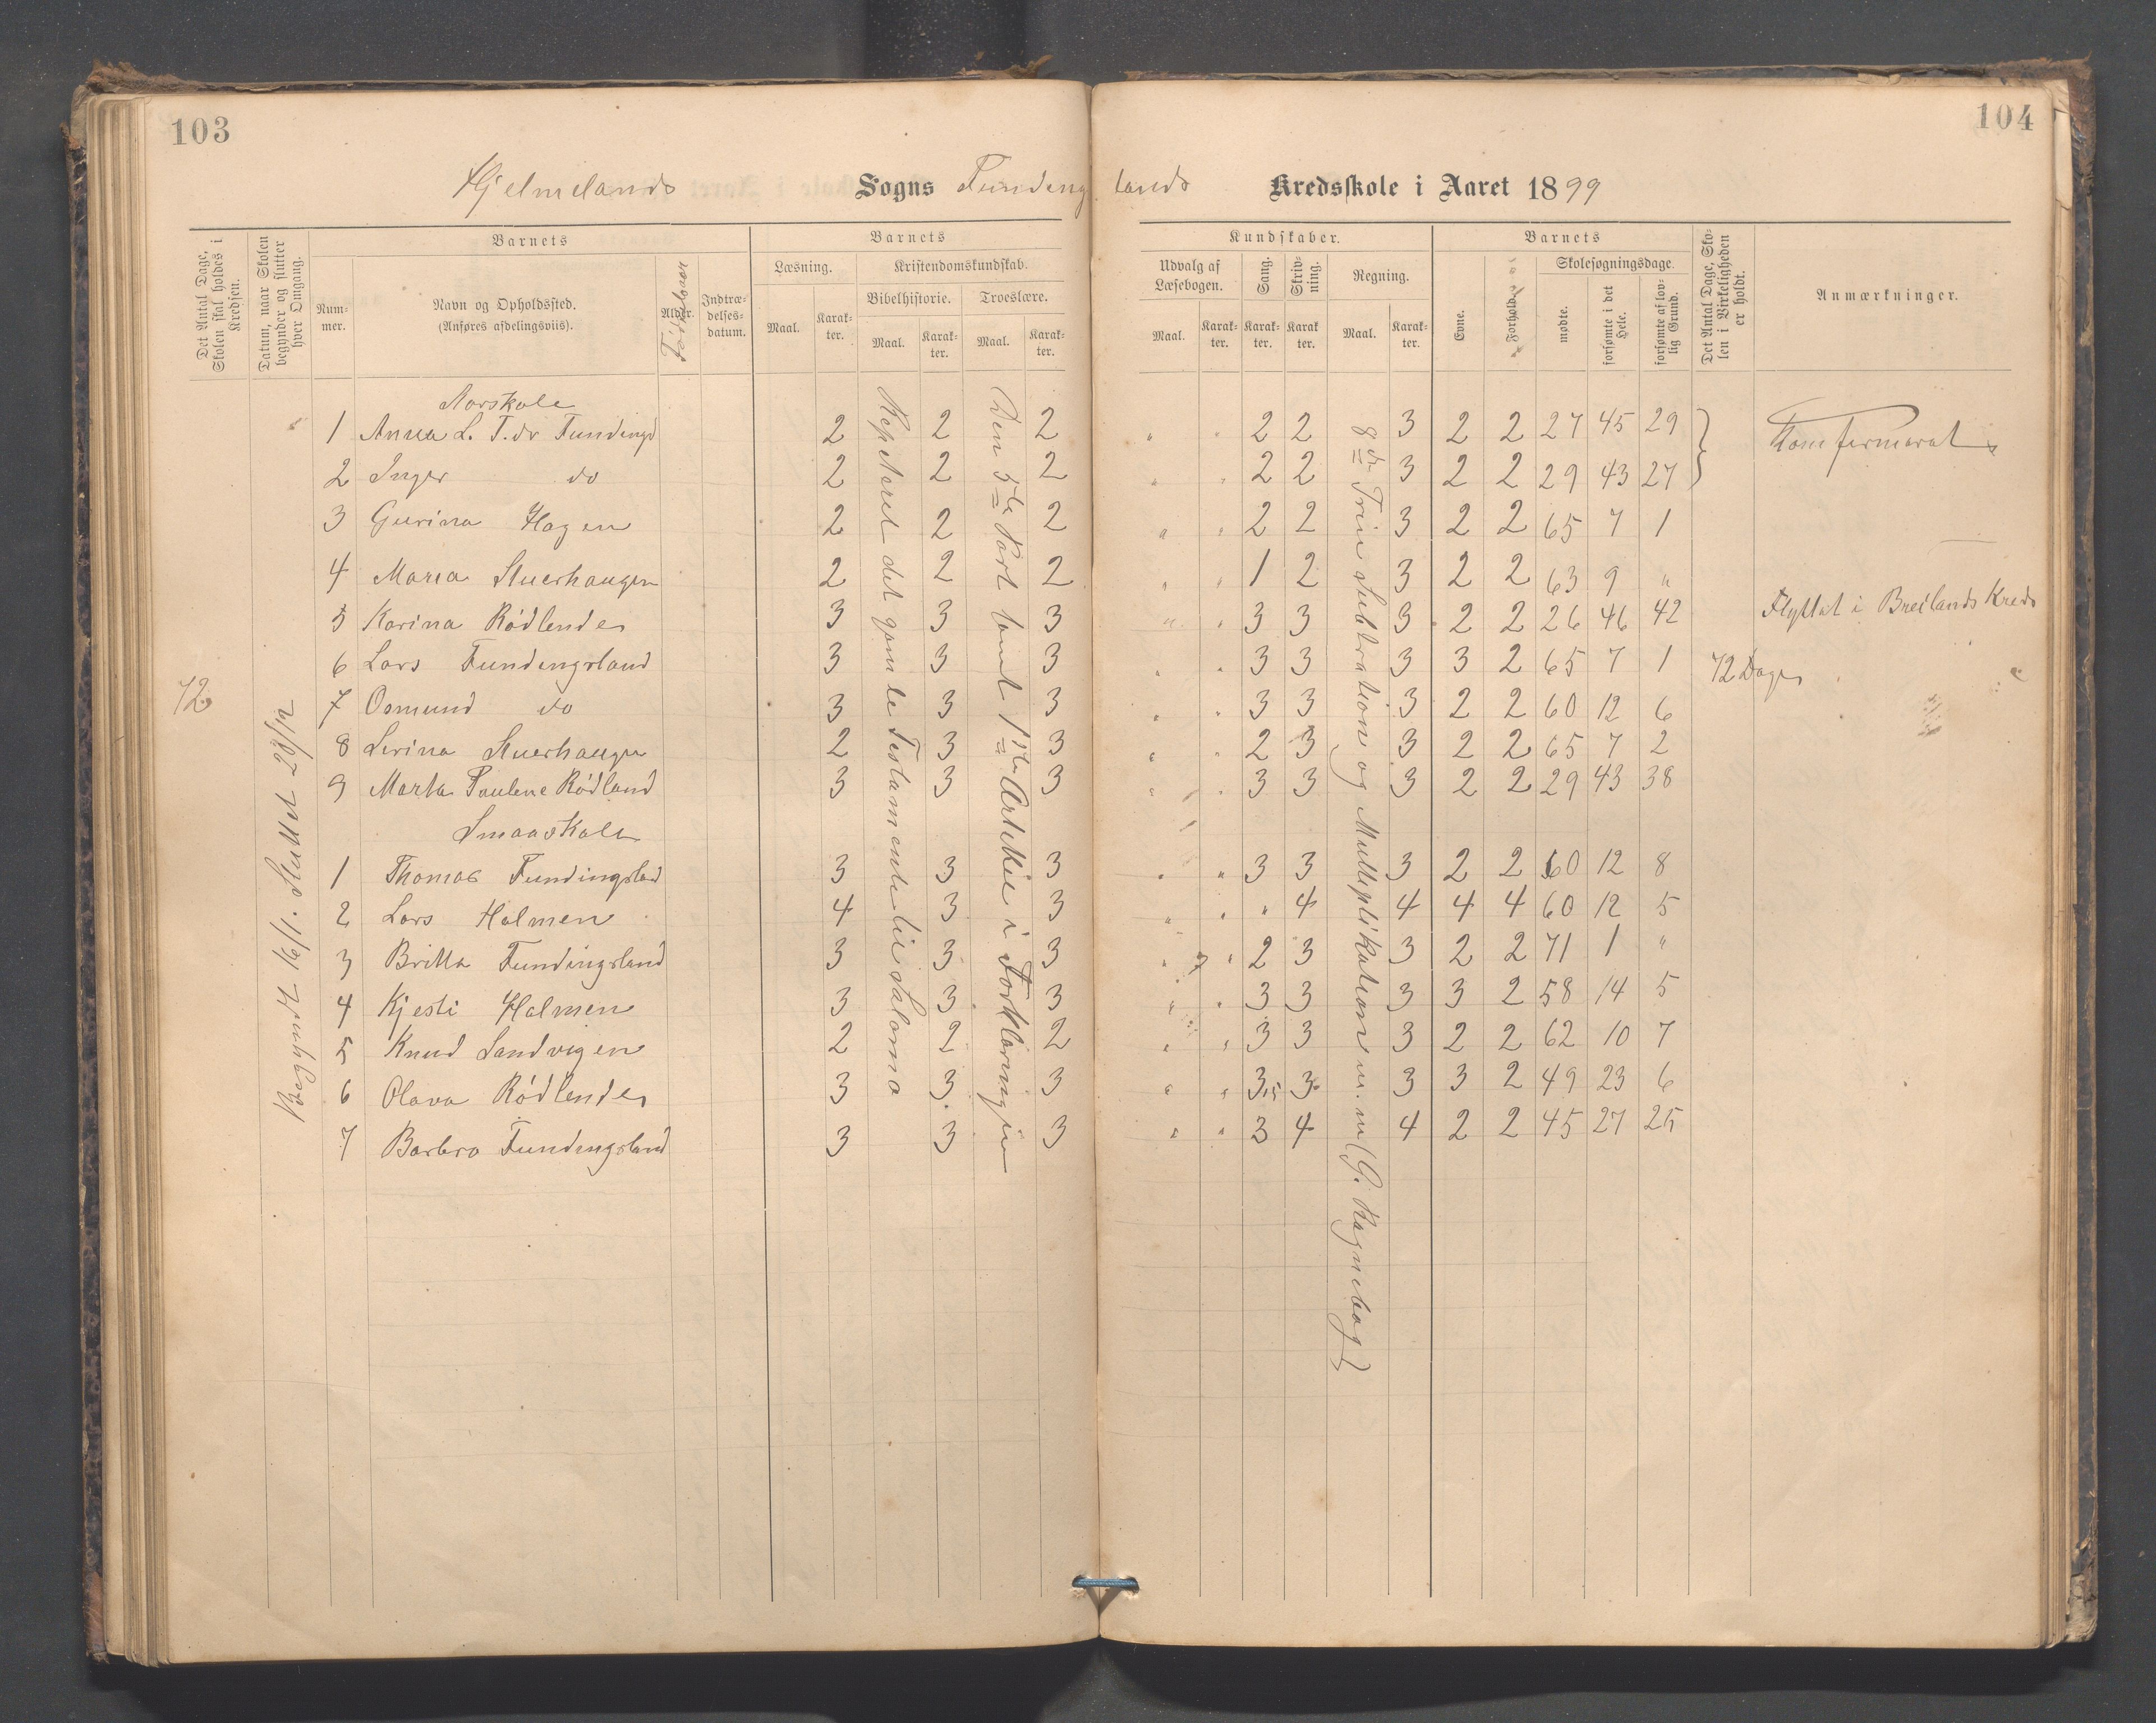 103
104
Hjelmelands Sogns Fundings lands Kredsskole i Aaret 1899
Det Antal Dage, Skolen skal holdes i Kredsen.
Datum, naar Skolen begynder og slutter hver Omgang.
Barnets
Nummer.
Navn og Opholdssted.
(Anføres afdelingsviis).
Alder.
Fødselsaar
Indtrædelsesdatum.
Barnets
Læsning.
Maal.
Karakter.
Kristendomskundskab.
Bibelhistorie.
Maal.
Karakter.
Troeslære.
Maal.
Karakter.
Kundskaber.
Udvalg af Læsebogen.
Maal.
Karakter.
Sang.
Karakter.
Skrivning.
Karakter.
Regning.
Maal.
Karakter.
Barnets
Evne.
Forhold.
Skolesøgningsdage.
mødte.
forsømte i det Hele.
forsømte af lovlig Grund.
Det Antal Dage, Skolen i Virkeligheden er holdt.
Anmærkninger.
72
Begyndt 16/1. Sluttet 28/12
Repeteret det gamle Testamente til Salomo
Den 5te Part samt 1ste Artikkel i Forklaringen
Trin Subtration og Multiplikationen m.m (G. Ragnebog)
1 Anna L. T.dr Fundingsl 2 2 2 " " 2 2 3 2 2 27 45 29 } Komfermerat
2 Inger do 2 2 2 " " 2 2 3 2 2 29 43 27
3 Gurina Hagen 2 2 2 " " 2 2 3 2 2 65 7 1
4 Maria Stuerhaugen 2 2 2 " " 1 2 3 2 2 63 9 "
5 Karina Rødlender 3 3 3 " " 3 3 3 2 2 26 46 42 Flyttet i Breilands Kreds
6 Lars Fundingsland 3 3 3 " " 3 3 3 3 2 65 7 1 72 Dage
7 Osmund do 3 3 3 " " 3 3 3 2 2 60 12 6
8 Serina Stuerhaugen 2 3 3 " " 2 3 3 2 2 65 7 2
9 Marta Paulene Rødland 3 3 3 " " 3 3 3 2 2 29 43 38
Smaaskole
1 Thomas Fundingsland 3 3 3 " " 3 3 3 2 2 60 12 8
2 Lars Holmen 4 3 3 " " " 4 4 4 4 60 12 5
3 Britta Fundingsland 3 3 3 " " 2 3 3 2 2 71 1 "
4 Kjesti Holmen 3 3 3 " " 3 3 3 3 2 58 14 5
5 Knud Sandvigen 2 2 2 " " 3 3 3 2 2 62 10 7
6 Olava Rødlender 3 3 3 " " 3,5 3 3 3 2 49 23 6
7 Barbro Fundingsland 3 3 3 " " 3 4 4 2 2 45 27 25